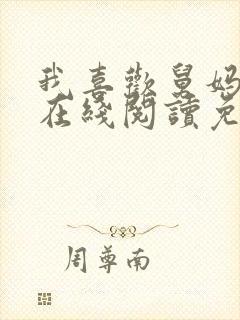 我喜歡舅妈
在綫閱讀免
周尊南